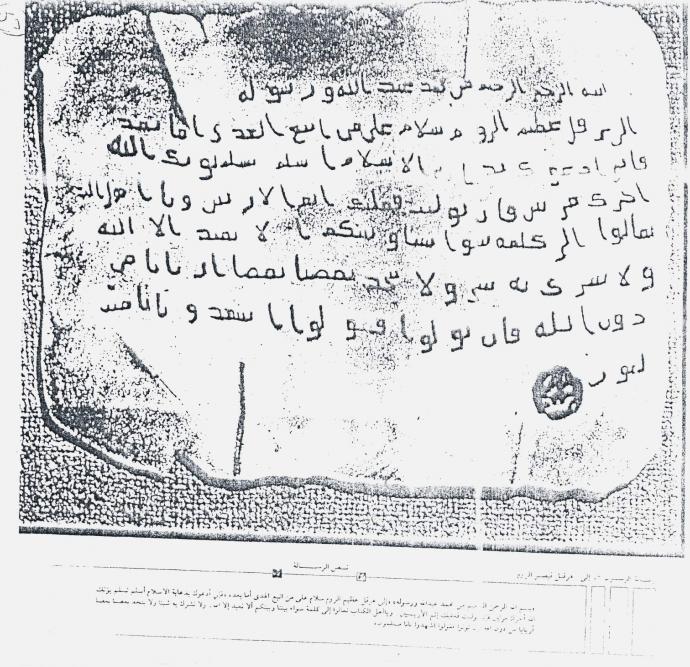 الله الرحمن الرحيم من محمد عبد الله ورسوله
الى هرقل عظيم الروم سلام على من اتبع الهدى اما بعد
فانى ادعوك بدعاية الاسلام اسلم تسلم يوتك الله
اجرك مرتين فان توليت فعليك اثم الاريسين ويا اهل
تعالوا الى كلمه سوا بيننا وبينكم الا نعبد الا الله
ولا نشرك به شيا ولا يتخذ بعضنا بعضا اربابا من
دون الله فان تولوا فقولوا اشهدوا بانا مسلمون
نص الرسالة
إلى هرقل قيصر الروم
بسم الله الرحمن من محمد عبدالله ورسوله، إلى هرقل عظيم الروم سلام على من اتبع الهدى أما بعد، فإني أدعوك بدعاية الاسلام أسلم تسلم يؤتك
الله أجرك مرتين توليت فعليك إثم الأريسيين. ويا أهل الكتاب تعالوا إلى كلمة سواء بيننا وبينكم ألا نعبد إلا الله. ولا نشرك به شيئا ولا يتخذ بعضنا بعضا
أربابا من دون تولوا فقولوا اشهدوا بأنا مسلمون